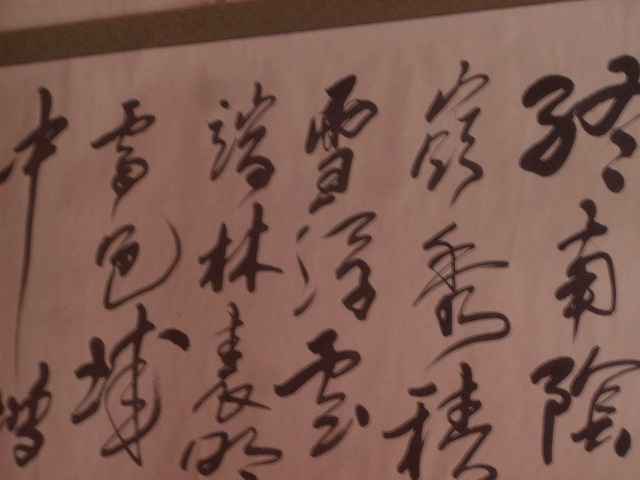 終南陰
嶺秀積
雪浮雲
端林表明
霽色城
中增